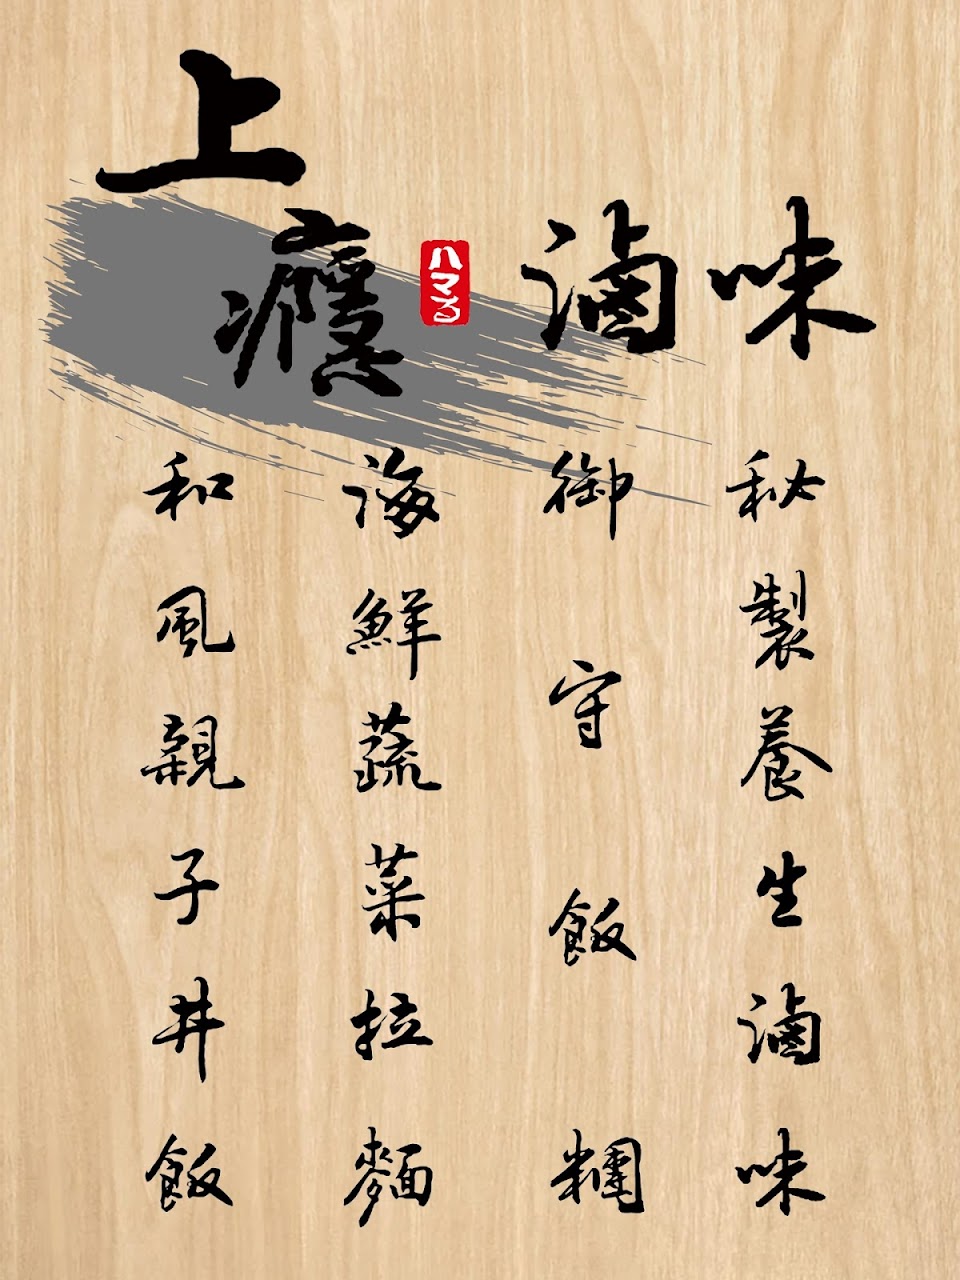 上癮
ハマる
滷味
秘製養生滷味
御守飯糰
海鮮蔬菜拉麵
和風親子丼飯